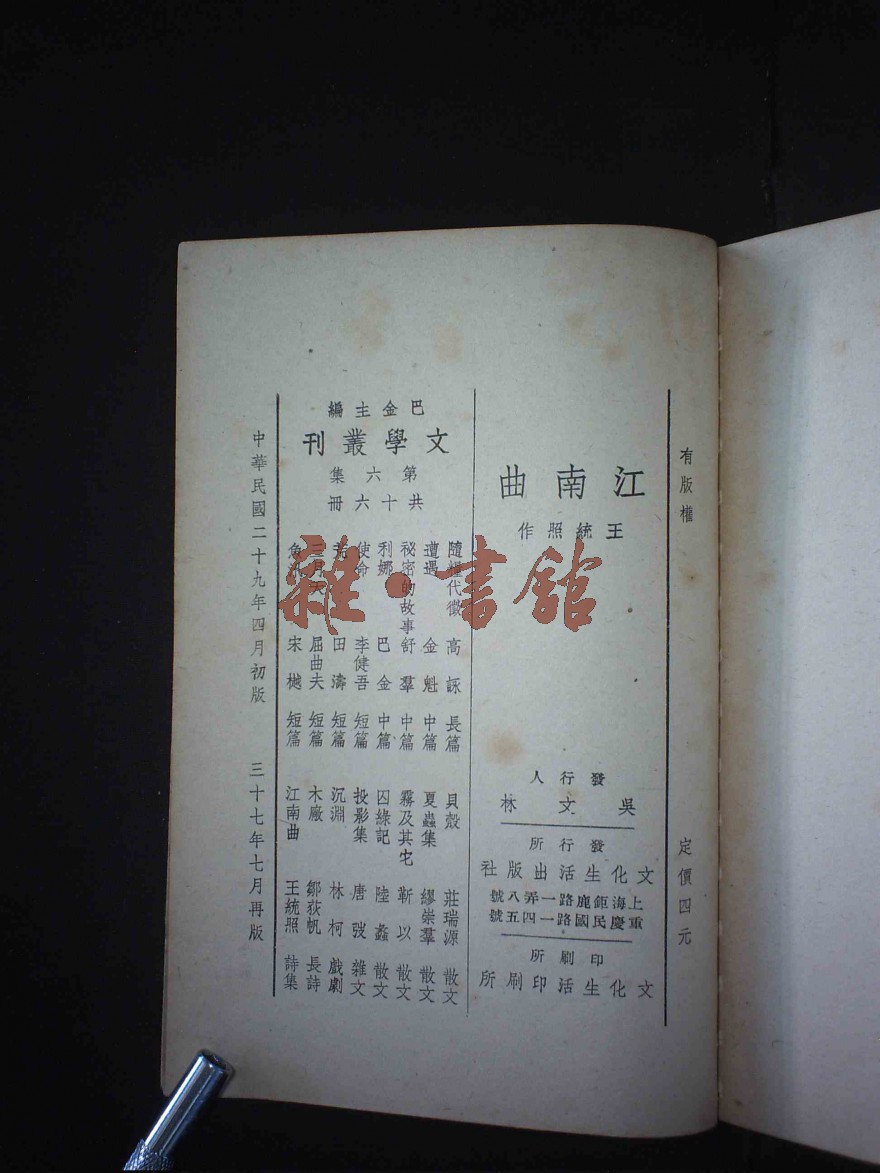 有版權
定價四元
江南曲
王統照作
發行人
吳文林
發行所
文化生活出版社
上海鉅鹿路一弄八號
重慶民國路一四五號
印刷所
文化生活印刷所
巴金主編
文學叢刊
第六集
共十六冊
隨糧代徵 高詠 長篇
遭遇 金魁 中篇
祕密的故事 舒羣 中篇
利娜 巴金 中篇
使命 李健吾 短篇
田濤 短篇
三月天 屈曲夫 短篇
宋樾 短篇
貝殼 莊瑞源 散文
夏蟲集 繆崇羣 散文
霧及其它 靳以 散文
囚綠記 陸蠡 散文
投影集 唐弢 雜文
沉淵 林柯 戲劇
木廠 鄒荻帆 長詩
江南曲 王統照 詩集
中華民國二十九年四月初版 三十七年七月再版
雜·書館